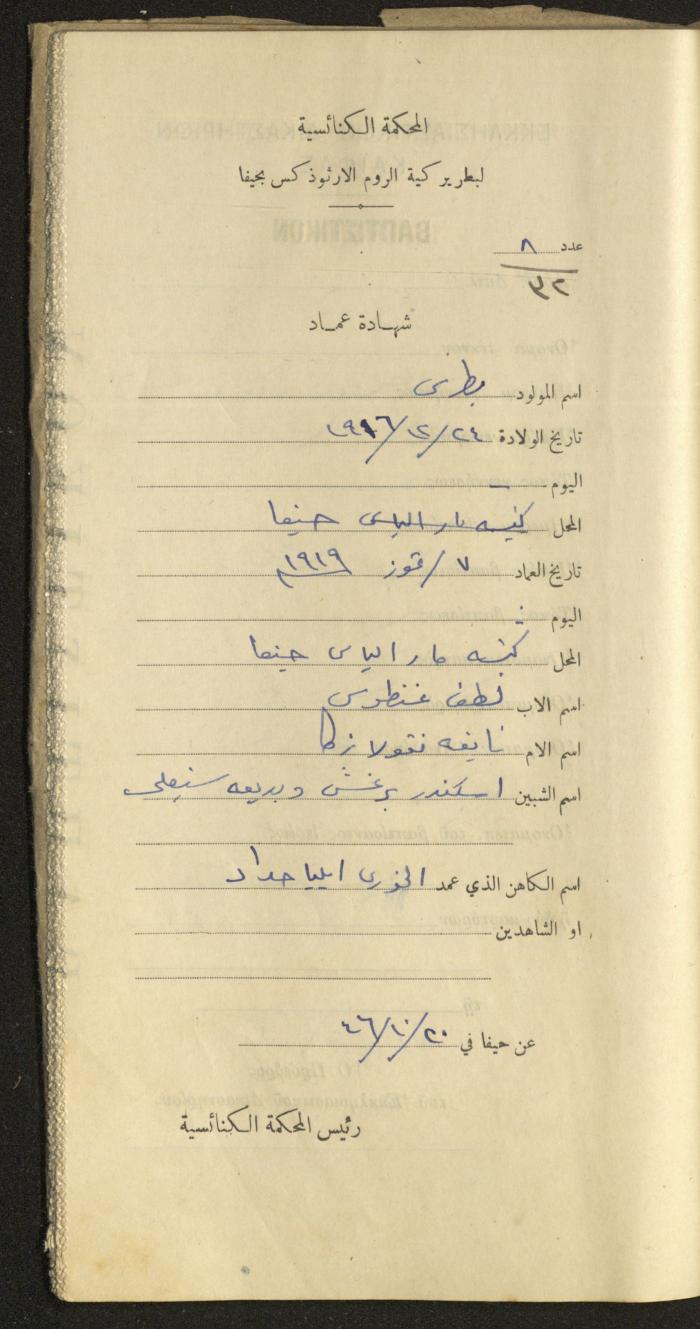 المحكمة الكنائسية
لبطريركية الروم الارثوذكس بحيفا
عدد ٨
٣٢
شهادة عماد
اسم المولود بطرس
تاريخ الولادة ٢٤/١٢/١٩١٦
اليوم –
المحل كنيسه مار الياس حيفا
تاريخ العماد ٧/تموز ١٩١٩م
اليوم
المحل كنيسه مار الياس حيفا
اسم الاب لطف غنطوس
اسم الام نايفه نقولا زكا
اسم الشبين اسكندر برغش وبديعه
اسم الكاهن الذي عمد الخوري ايليا حداد
او الشاهدين
عن حيفا في ٢٠/١٠/٤٦
رئيس المحكمة الكنائسية